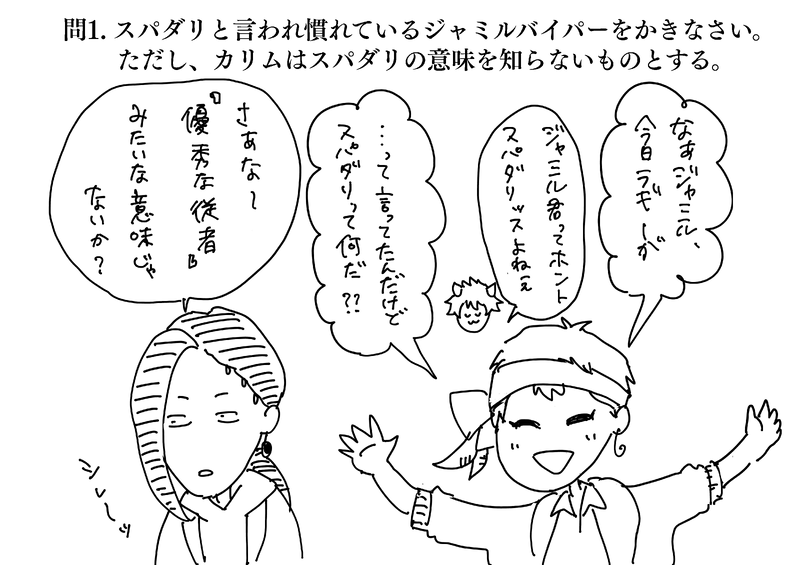 問1. スパダリと言われ慣れているジャミルバイパーをかきなさい。
ただし、カリムはスパダリの意味を知らないものとする。
なあジャミル、
今日ラギーが
ジャミル君ってホント
スパダリッスよねぇ
…って言ってたんだけど
スパダリって何だ??
さあな〜
『優秀な従者』
みたいな意味じゃ
ないか?
シレーッ